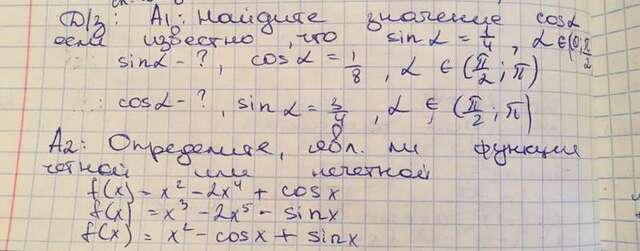 Д/з: А1: Найдите значение cosα
если известно, что sinα = 1/4, α ∈ (0; π/2
sinα - ?, cosα = 1/8, α ∈ (π/2; π)
cosα - ?, sinα = 3/4, α ∈ (π/2; π)
А2: Определите, явл. ли функции
четной или нечетной
f(x) = x² - 2x⁴ + cosx
f(x) = x³ - 2x⁵ - sinx
f(x) = x² - cosx + sinx